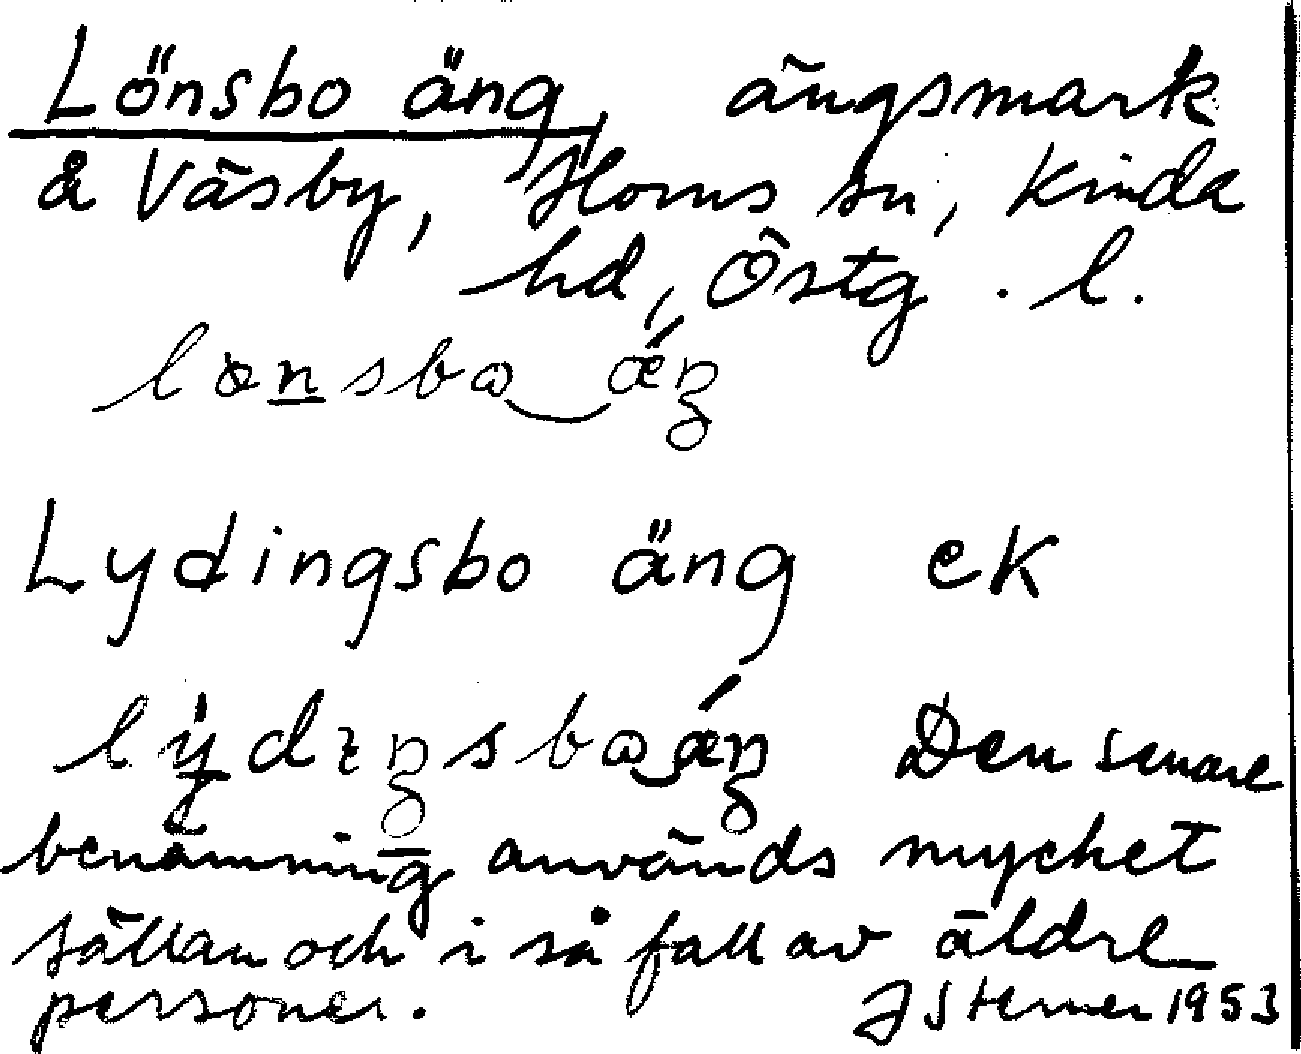 Lönsbo äng, ängsmark
å Väsby, Horns sn, Kinda
hd, Östg. l.
Lydingsbo äng ek
Den senare
benämning används mycket
sällan och i så fall av äldre
personer. J Sterner 1953